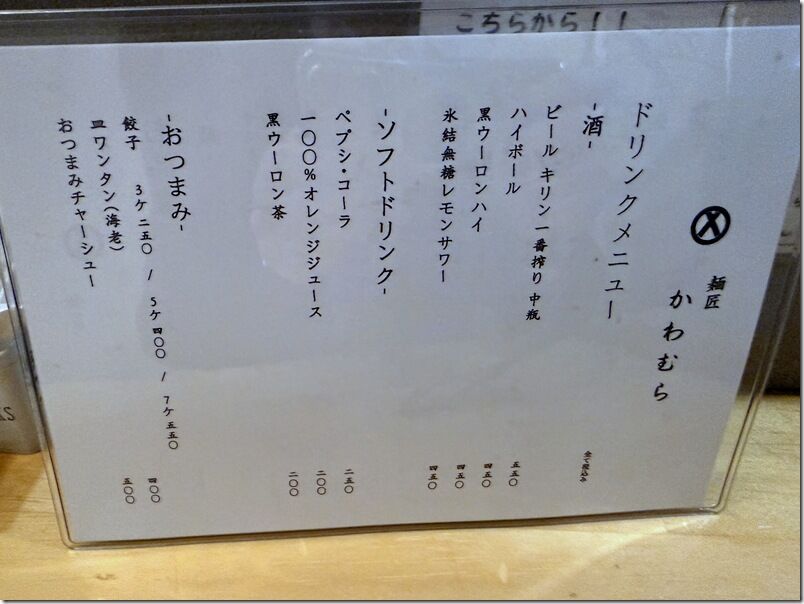 こちらから!!
麺匠
かわむら
ドリンクメニュー
全て税込み
-酒-
ビール キリン一番搾り 中瓶 五五〇
ハイボール 四五〇
黒ウーロンハイ 四五〇
氷結無糖レモンサワー 四五〇
-ソフトドリンク-
ペプシ・コーラ 二五〇
一〇〇%オレンジジュース 二〇〇
黒ウーロン茶 二〇〇
-おつまみ-
餃子 3ケ 二五〇 / 5ケ 四〇〇 / 7ケ 五五〇
皿ワンタン(海老) 四〇〇
おつまみチャーシュー 五〇〇